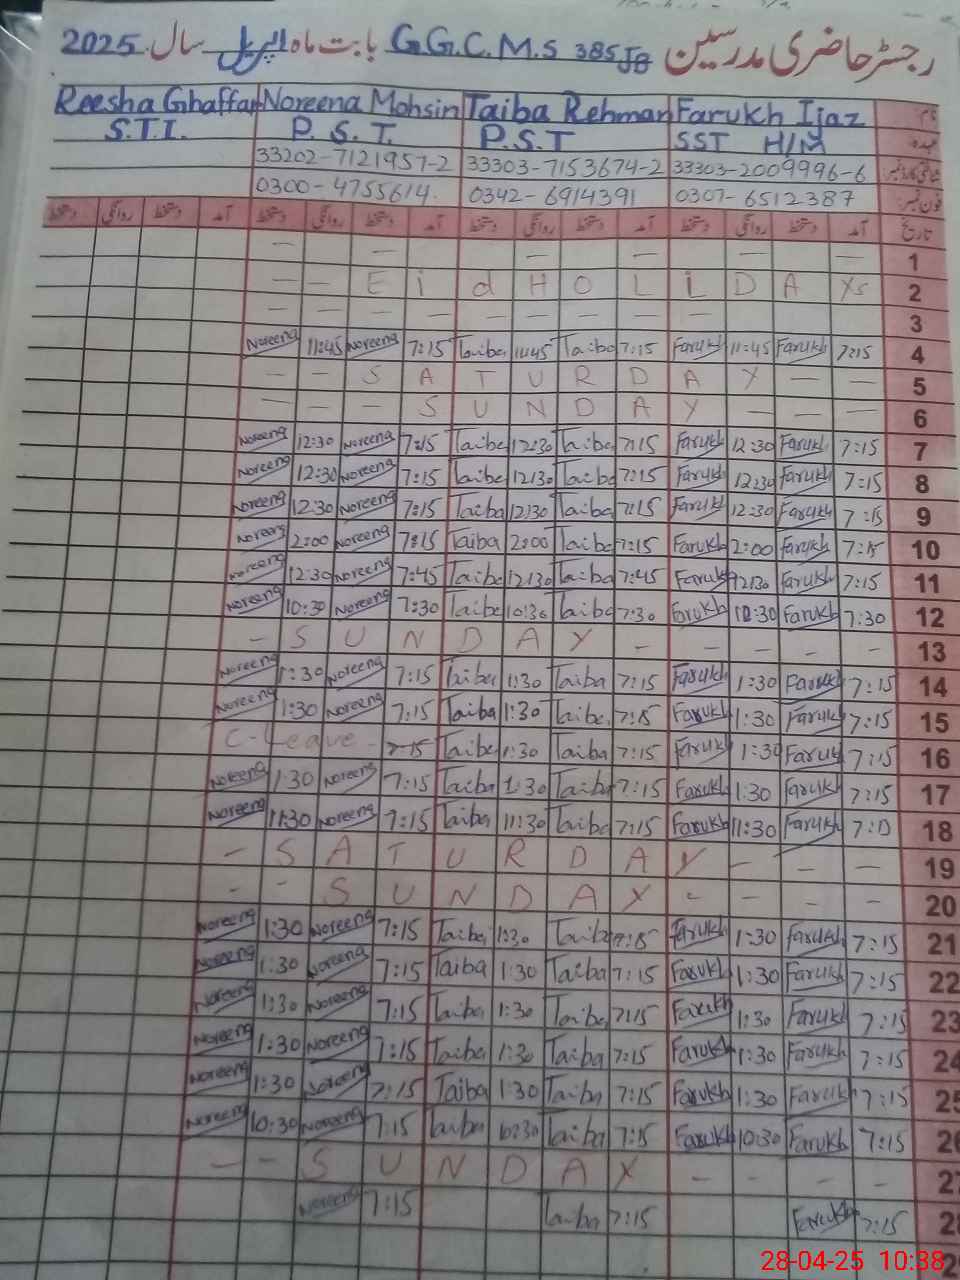 رجسٹر حاضری مدرسین G.G.C.M.S 385 JB بابت ماہ اپریل سال 2025
نام Farukh Ijaz Taiba Rehman Noreena Mohsin Reesha Ghaffar
عہدہ SST H/M P.S.T P.S.T. S.T.I.
شناختی کارڈ نمبر 33303-2009996-6 33303-7153674-2 33202-7121957-2
فون نمبر 0307-6512387 0342-6914391 0300-4755614.
تاریخ آمد دستخط روانگی دستخط آمد دستخط روانگی دستخط آمد دستخط روانگی دستخط آمد دستخط روانگی دستخط
— — — — — 1
— — E i d H O L i D A Ys 2
— — — — — — — — — — — — 3
Noreena 11:45 Noreena 7:15 Taiba 11:45 Taiba 7:15 Farukh 11:45 Farukh 7:15 4
— — S A T U R D A Y — — 5
— — — S U N D A Y — — — 6
Noreena 12:30 Noreena 7:15 Taiba 12:30 Taiba 7:15 Farukh 12:30 Farukh 7:15 7
Noreena 12:30 Noreena 7:15 Taiba 12:30 Taiba 7:15 Farukh 12:30 Farukh 7:15 8
Noreena 12:30 Noreena 7:15 Taiba 12:30 Taiba 7:15 Farukh 12:30 Farukh 7:15 9
Noreena 2:00 Noreena 7:15 Taiba 2:00 Taiba 7:15 Farukh 2:00 Farukh 7:15 10
Noreena 12:30 Noreena 7:45 Taiba 12:30 Taiba 7:45 Farukh 12:30 Farukh 7:15 11
Noreena 10:30 Noreena 7:30 Taiba 10:30 Taiba 7:30 Farukh 10:30 Farukh 7:30 12
- S U N D A Y - - - - - 13
Noreena 1:30 Noreena 7:15 Taiba 1:30 Taiba 7:15 Farukh 1:30 Farukh 7:15 14
Noreena 1:30 Noreena 7:15 Taiba 1:30 Taiba 7:15 Farukh 1:30 Farukh 7:15 15
C-Leave - 7:15 Taiba 1:30 Taiba 7:15 Farukh 1:30 Farukh 7:15 16
Noreena 1:30 Noreena 7:15 Taiba 1:30 Taiba 7:15 Farukh 1:30 Farukh 7:15 17
Noreena 11:30 Noreena 7:15 Taiba 11:30 Taiba 7:15 Farukh 11:30 Farukh 18
- S A T U R D A Y - - - 19
- - S U N D A Y - - - - 20
Noreena 1:30 Noreena 7:15 Taiba 1:30 Taiba 7:15 Farukh 1:30 Farukh 7:15 21
Noreena 1:30 Noreena 7:15 Taiba 1:30 Taiba 7:15 Farukh 1:30 Farukh 7:15 22
Noreena 1:30 Noreena 7:15 Taiba 1:30 Taiba 7:15 Farukh 1:30 Farukh 7:15 23
Noreena 1:30 Noreena 7:15 Taiba 1:30 Taiba 7:15 Farukh 1:30 Farukh 7:15 24
Noreena 1:30 Noreena 7:15 Taiba 1:30 Taiba 7:15 Farukh 1:30 Farukh 7:15 25
Noreena 10:30 Noreena 7:15 Taiba 10:30 Taiba 7:15 Farukh 10:30 Farukh 7:15 26
- - S U N D A Y - - - - 27
Noreena 7:15 Taiba 7:15 Farukh 7:15 28
28-04-25 10:38